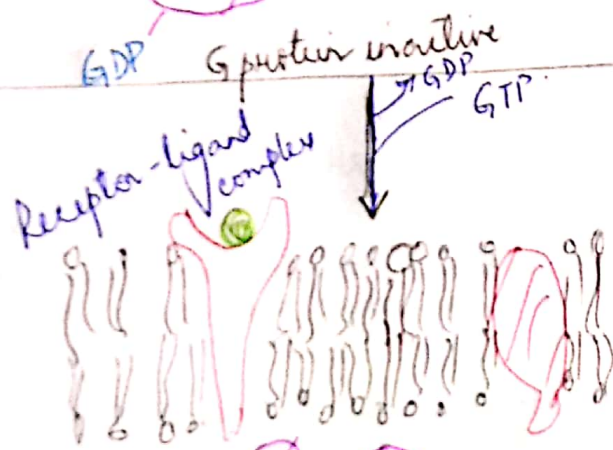 GDP
G protein inactive
GDP
GTP
Receptor-ligand
complex